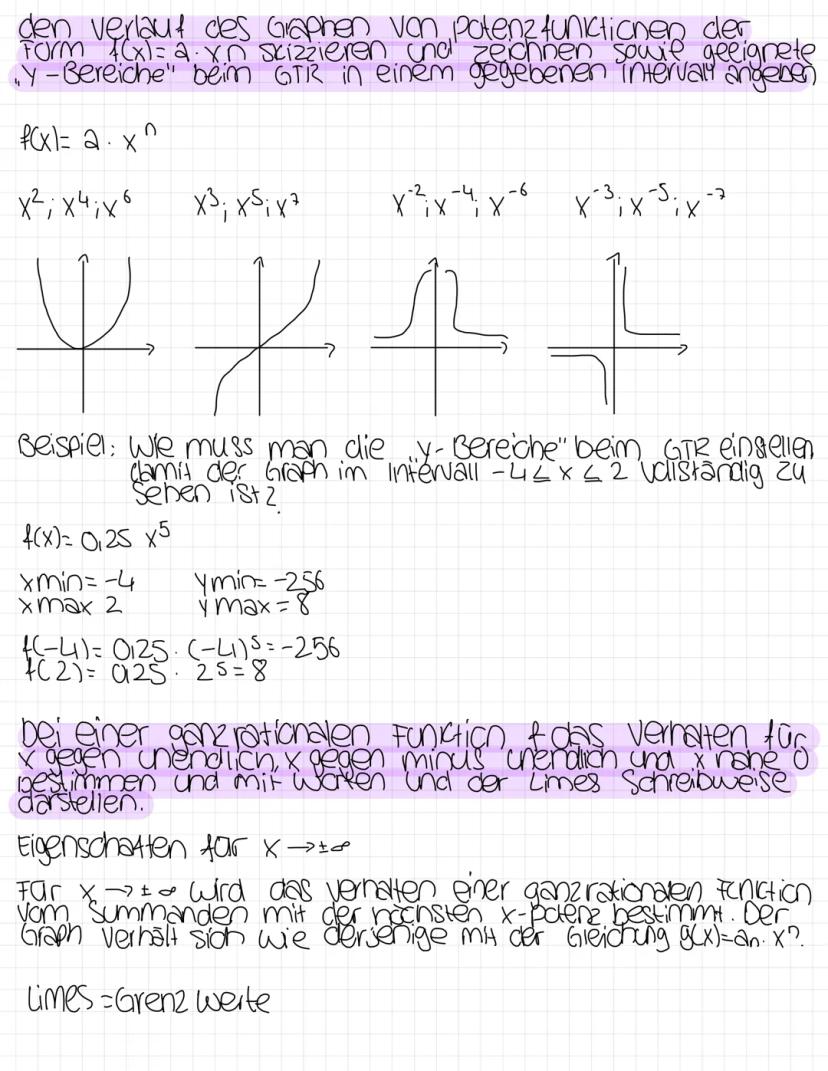 den Verlauf des Graphen von Potenzfunktionen der
Form f(x)= a · xn skizzieren und zeichnen sowie geeignete
„Y-Bereiche" beim GTR in einem gegebenen Intervall angeben
f(x)= a · xⁿ
x²; x⁴; x⁶ x³; x⁵; x⁷ x⁻²; x⁻⁴; x⁻⁶ x⁻³; x⁻⁵; x⁻⁷
Beispiel: Wie muss man die „Y-Bereiche" beim GTR einstellen
damit der Graph im Intervall -4 ≤ x ≤ 2 vollständig zu
sehen ist?
f(x)= 0,25 x⁵
xmin= -4 ymin= -256
xmax 2 ymax = 8
f(-4)= 0,25 · (-4)⁵= -256
f(2)= 0,25 · 2⁵= 8
bei einer ganzrationalen Funktion f das Verhalten für
x gegen unendlich, x gegen minus unendlich und x nahe 0
bestimmen und mit Worten und der Limes Schreibweise
darstellen.
Eigenschaften für x → ±∞
Für x → ±∞ wird das verhalten einer ganzrationalen Funktion
vom Summanden mit der höchsten x-Potenz bestimmt. Der
Graph verhält sich wie derjenige mit der Gleichung g(x)=an · xⁿ.
Limes = Grenzwerte